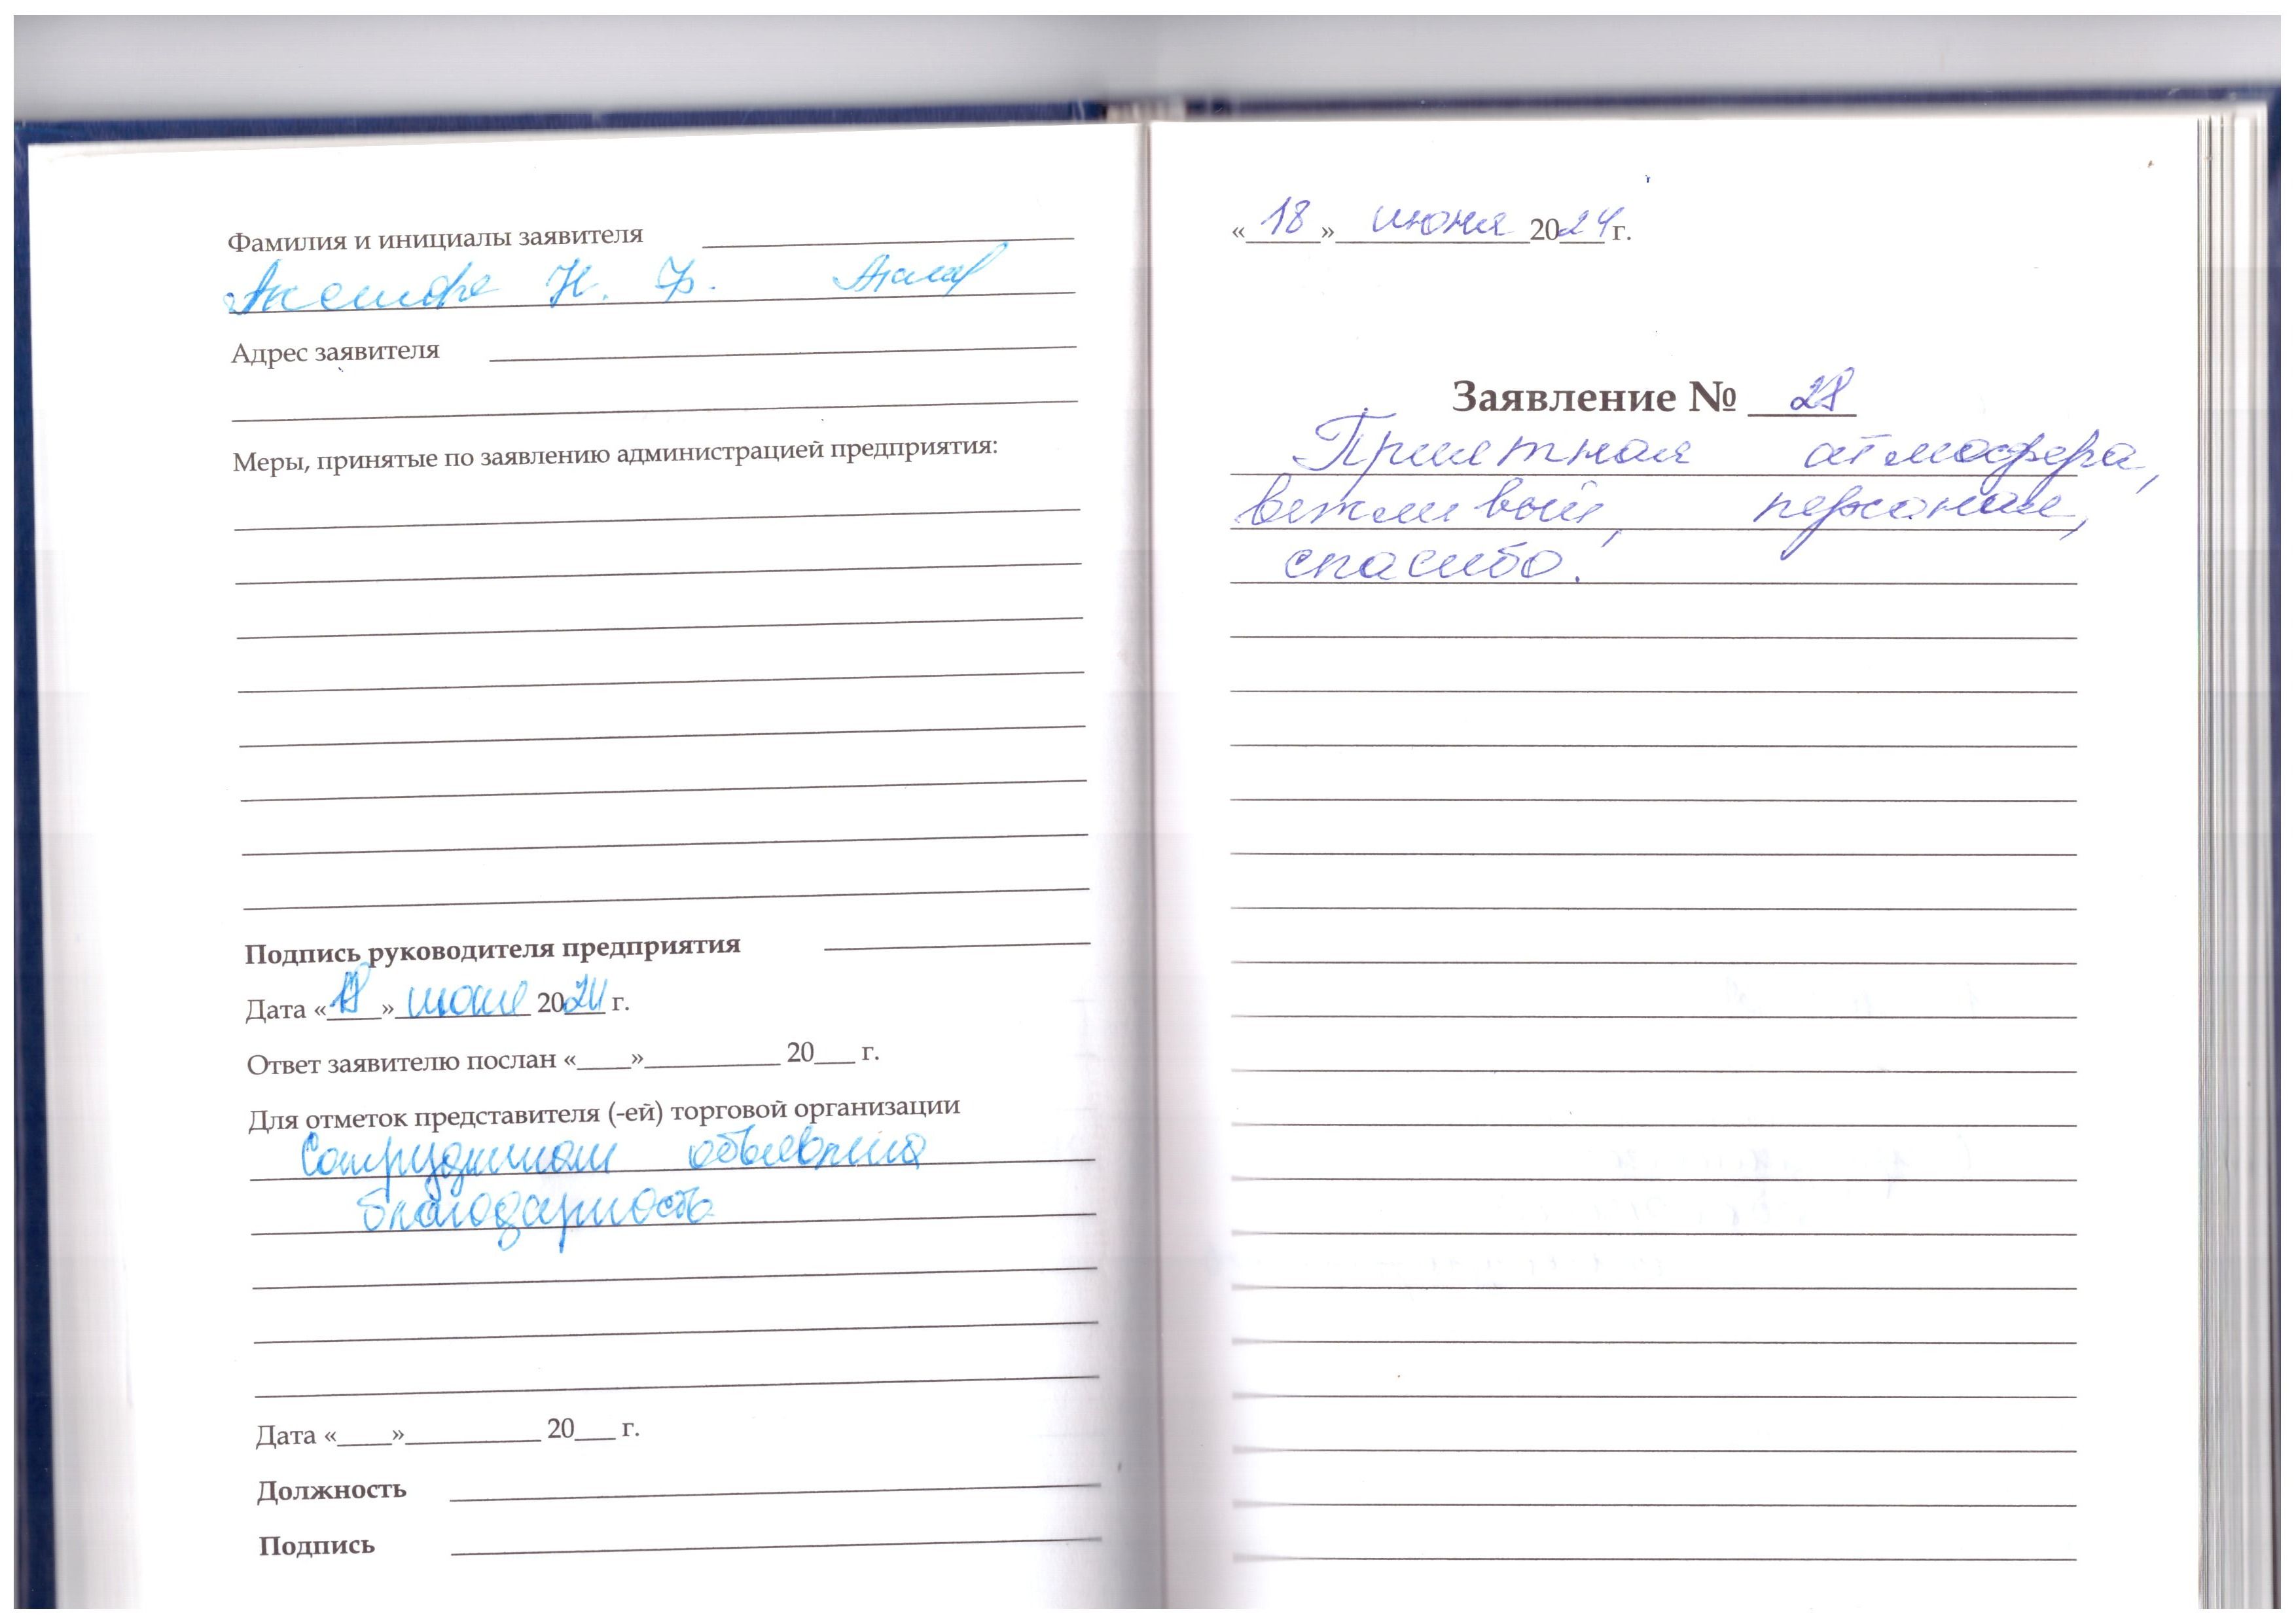 Фамилия и инициалы заявителя
Н. Ф.
Адрес заявителя
Меры, принятые по заявлению администрацией предприятия:
Подпись руководителя предприятия
Дата «18» июня 2024 г.
Ответ заявителю послан «____»__________ 20___ г.
Для отметок представителя (-ей) торговой организации
Сотрудникам объявлена
благодарность
Дата «____»__________ 20___ г.
Должность
Подпись
«18» июня 2024 г.
Заявление № 28
Приятная атмосфера,
вежливый, персонал,
спасибо!